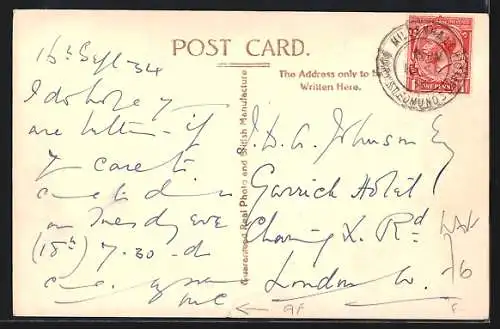 POST CARD.
The Address only to be
Written Here.
Guaranteed Real Photo and British Manufacture
MILDENHALL
BURY ST EDMUNDS
ONE PENNY
16th Sept 34
I do hope you
are better – if
you care to
come to dinner
on Tuesday eve
(18th) 7.30 – do
come
Johnson Esq
Garrick Hotel
Charing X. Rd
London W.